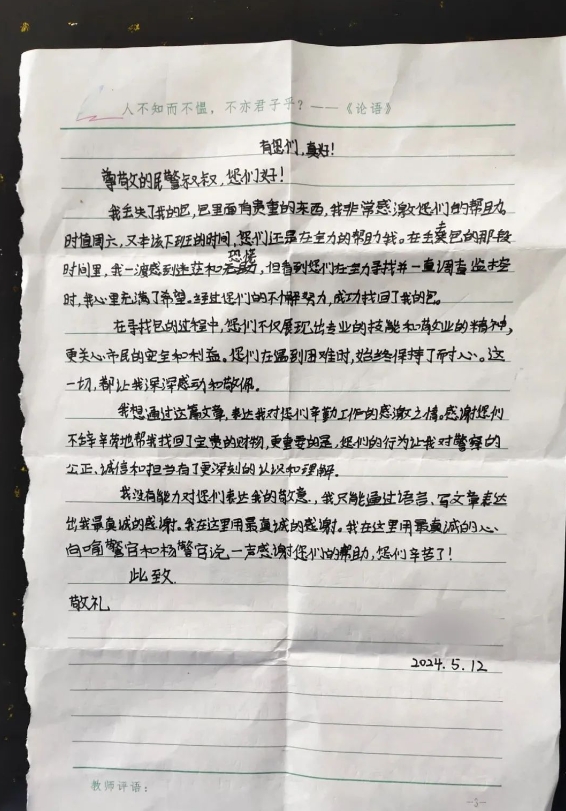 人不知而不愠，不亦君子乎？——《论语》
有您们，真好！
尊敬的民警叔叔，您们好！
我丢失了我的包，包里面有贵重的东西，我非常感激您们的帮助。
时值周六，又丰该下班的时间，您们还是在全力的帮助我。在丢失包的那段
时间里，我一度感到迷茫和恐慌，但看到您们在全力寻找并一直调查监控
时，我心里充满了希望。经过您们的不懈努力，成功找回了我的包。
在寻找包的过程中，您们不仅展现出专业的技能和敬业的精神，
更关心市民的安全和利益。您们在遇到困难时，始终保持了耐心。这
一切，都让我深深感动和敬佩。
我想通过这篇文章，表达我对您们辛勤工作的感激之情。感谢您们
不辞辛劳地帮我找回了宝贵的财物，更重要的是，您们的行为让我对警察的
公正、诚信和担当有了更深刻的认识和理解。
我没有能力对您们表达我的敬意，我只能通过语言、写文章表达
出我最真诚的感谢。我在这里用最真诚的感谢。我在这里用最真诚的心
向喻警官和杨警官说一声感谢您们的帮助，您们辛苦了！
此致
敬礼
2024.5.12
教师评语：
—5—